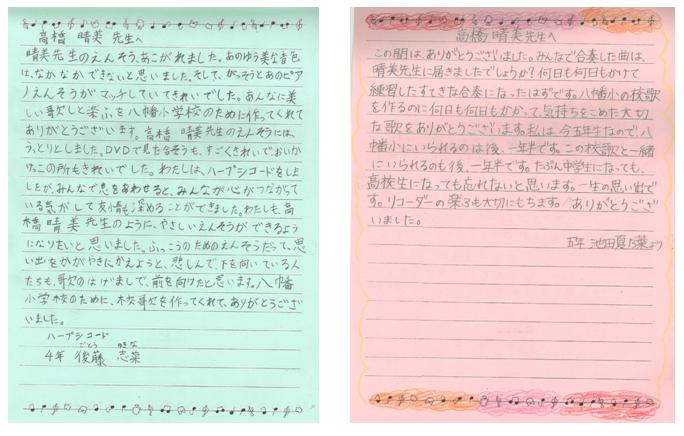 高橋 晴美 先生へ
晴美先生のえんそう、あこがれました。あのゆう美な音色
は、なかなかできないと思いました。そして、がっそうとあのピア
ノえんそうがマッチしていてきれいでした。あんなに美
しい歌しと楽ふを八幡小学校のために作ってくれて
ありがとうございます。高橋 晴美先生のえんそうには、
うっとりとしました。DVDで見た合そうも、すごくきれいで、おいか
けっこの所もきれいでした。わたしは、ハープシコードをしま
したが、みんなで息をあわせると、みんなが心がつながって
いる気がして友情も深めることができました。わたしも、高
橋晴美先生のように、やさしいえんそうができるよう
になりたいと思いました。ふっこうのためのえんそうだって、思
い出をかがやきにかえようと、悲しんで、下を向いている人
たちも、歌のはげましで、前を向けたと思います。八幡
小学校のために、校歌を作ってくれて、ありがとうござ
いました。
ハープシコード
ごとう ゆきな
4年 後藤 志菜
高橋 晴美先生へ
この間は、ありがとうございました。みんなで合奏した曲は、
晴美先生に届きましたでしょうか?何日も何日もかけて
練習したすてきな合奏になったはずです。八幡小の校歌
を作るのに何日も何日もかかって、気持ちをこめた大切
な歌をありがとうございます。私は今五年生なので八
幡小にいられるのは後、一年半です。この校歌と一緒
にいられるのも後、一年半です。たぶん中学生になっても、
高校生になっても忘れないと思います。一生の思い出で
す。リコーダーの楽ふも大切にもちます。ありがとうござ
いました。
五年 池田夏乃葉より